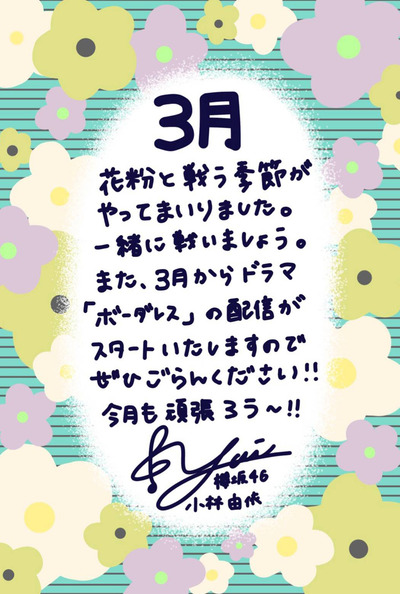 3月
花粉と戦う季節が
やってまいりました。
一緒に戦いましょう。
また、3月からドラマ
「ボーダレス」の配信が
スタートいたしますので
ぜひごらんください!!
今月も頑張ろう〜!!
Yui
櫻坂46
小林由依